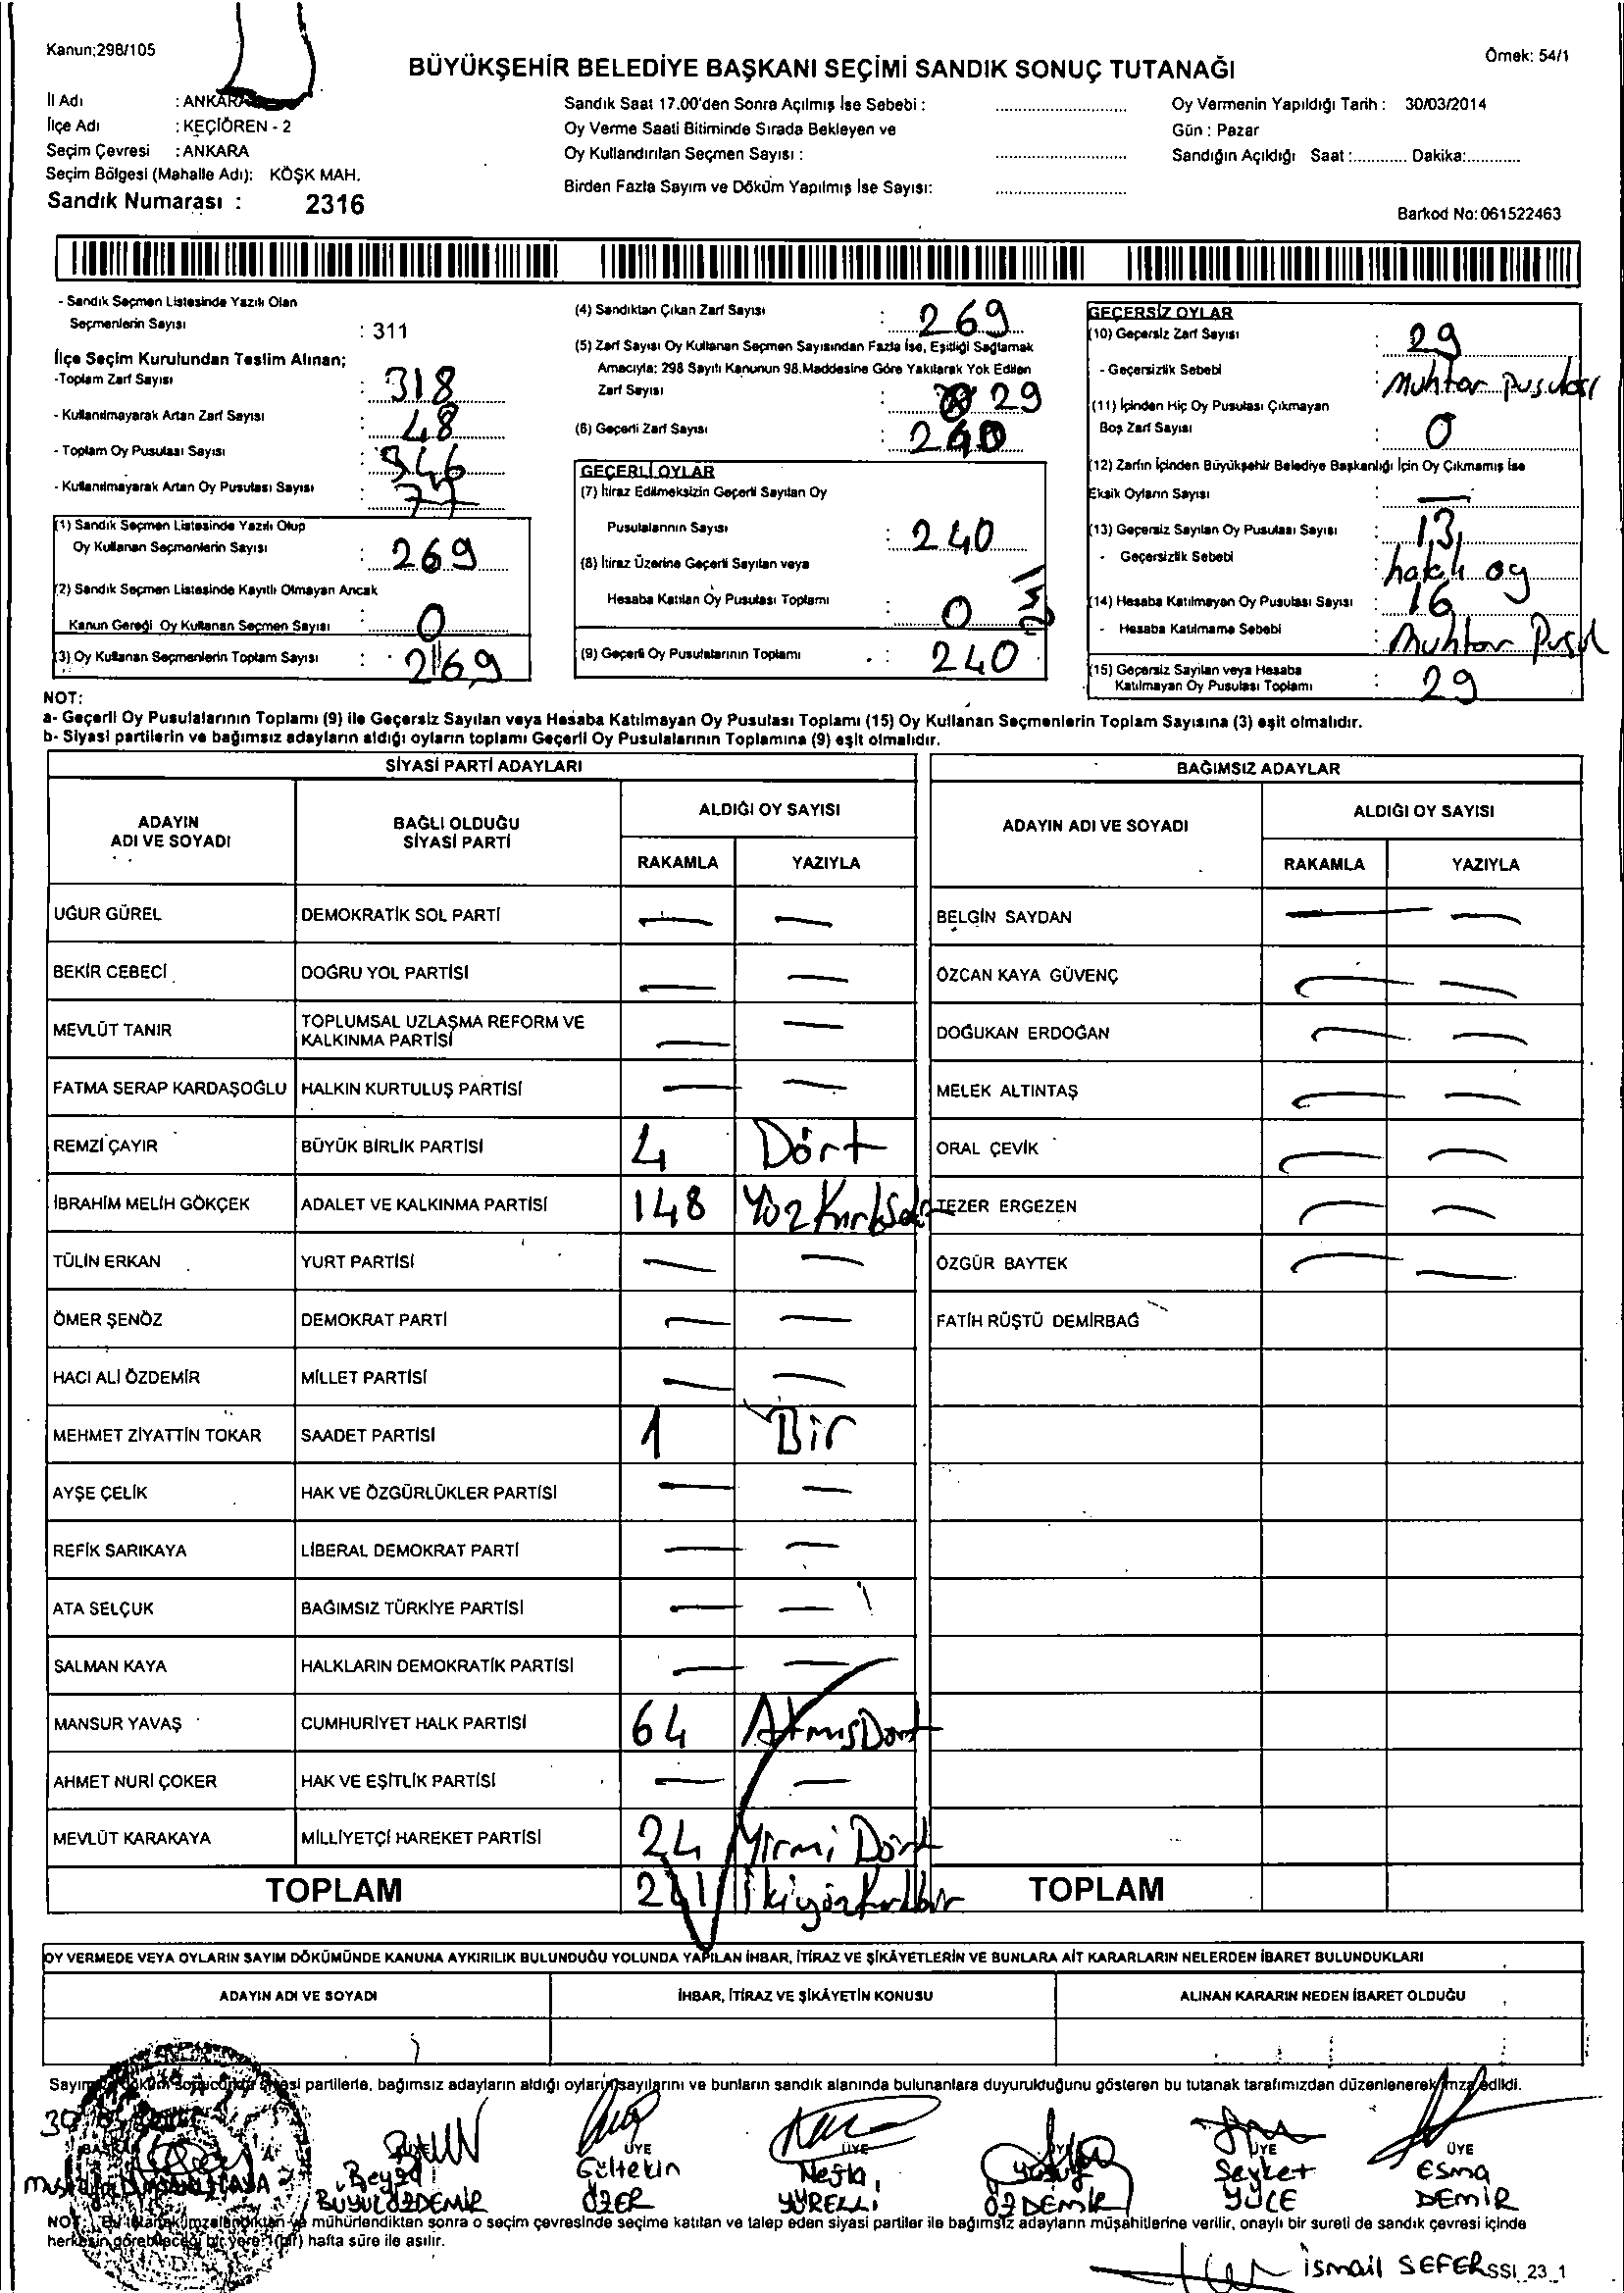 Kanun;298/105
Örnek: 54/1
BÜYÜKŞEHİR BELEDİYE BAŞKANI SEÇİMİ SANDIK SONUÇ TUTANAĞI
İl Adı : ANKARA
İlçe Adı : KEÇİÖREN - 2
Seçim Çevresi : ANKARA
Seçim Bölgesi (Mahalle Adı): KÖŞK MAH.
Sandık Numarası : 2316
Sandık Saat 17.00'den Sonra Açılmış İse Sebebi :
Oy Verme Saati Bitiminde Sırada Bekleyen ve
Oy Kullandırılan Seçmen Sayısı :
Birden Fazla Sayım ve Döküm Yapılmış İse Sayısı:
Oy Vermenin Yapıldığı Tarih : 30/03/2014
Gün : Pazar
Sandığın Açıldığı Saat :............ Dakika:............
Barkod No: 061522463
- Sandık Seçmen Listesinde Yazılı Olan
Seçmenlerin Sayısı : 311
İlçe Seçim Kurulundan Teslim Alınan;
-Toplam Zarf Sayısı : 318
- Kullanılmayarak Artan Zarf Sayısı : 48
- Toplam Oy Pusulası Sayısı : 346
- Kullanılmayarak Artan Oy Pusulası Sayısı : 77
(1) Sandık Seçmen Listesinde Yazılı Olup
Oy Kullanan Seçmenlerin Sayısı : 269
(2) Sandık Seçmen Listesinde Kayıtlı Olmayan Ancak
Kanun Gereği Oy Kullanan Seçmen Sayısı : 0
(3) Oy Kullanan Seçmenlerin Toplam Sayısı : 269
(4) Sandıktan Çıkan Zarf Sayısı : 269
(5) Zarf Sayısı Oy Kullanan Seçmen Sayısından Fazla İse, Eşitliği Sağlamak
Amacıyla; 298 Sayılı Kanunun 98.Maddesine Göre Yakılarak Yok Edilen
Zarf Sayısı : 29
(6) Geçerli Zarf Sayısı : 240
GEÇERLİ OYLAR
(7) İtiraz Edilmeksizin Geçerli Sayılan Oy
Pusulalarının Sayısı : 240
(8) İtiraz Üzerine Geçerli Sayılan veya
Hesaba Katılan Oy Pusulası Toplamı : 0
(9) Geçerli Oy Pusulalarının Toplamı : 240
GEÇERSİZ OYLAR
(10) Geçersiz Zarf Sayısı : 29
- Geçersizlik Sebebi : Muhtar Pusulası
(11) İçinden Hiç Oy Pusulası Çıkmayan
Boş Zarf Sayısı : 0
(12) Zarfın İçinden Büyükşehir Belediye Başkanlığı İçin Oy Çıkmamış İse
Eksik Oyların Sayısı : —
(13) Geçersiz Sayılan Oy Pusulası Sayısı : 13
- Geçersizlik Sebebi : oy
(14) Hesaba Katılmayan Oy Pusulası Sayısı : 16
- Hesaba Katılmama Sebebi : Muhtar Pusul
(15) Geçersiz Sayılan veya Hesaba
Katılmayan Oy Pusulası Toplamı : 29
NOT:
a- Geçerli Oy Pusulalarının Toplamı (9) ile Geçersiz Sayılan veya Hesaba Katılmayan Oy Pusulası Toplamı (15) Oy Kullanan Seçmenlerin Toplam Sayısına (3) eşit olmalıdır.
b- Siyasi partilerin ve bağımsız adayların aldığı oyların toplamı Geçerli Oy Pusulalarının Toplamına (9) eşit olmalıdır.
SİYASİ PARTİ ADAYLARI
ADAYIN ADI VE SOYADI BAĞLI OLDUĞU SİYASİ PARTİ ALDIĞI OY SAYISI
RAKAMLA YAZIYLA
UĞUR GÜREL DEMOKRATİK SOL PARTİ — —
BEKİR CEBECİ DOĞRU YOL PARTİSİ — —
MEVLÜT TANIR TOPLUMSAL UZLAŞMA REFORM VE KALKINMA PARTİSİ — —
FATMA SERAP KARDAŞOĞLU HALKIN KURTULUŞ PARTİSİ — —
REMZİ ÇAYIR BÜYÜK BİRLİK PARTİSİ 4 Dört
İBRAHİM MELİH GÖKÇEK ADALET VE KALKINMA PARTİSİ 148 Yüz Kırk
TÜLİN ERKAN YURT PARTİSİ — —
ÖMER ŞENÖZ DEMOKRAT PARTİ — —
HACI ALİ ÖZDEMİR MİLLET PARTİSİ — —
MEHMET ZİYATTİN TOKAR SAADET PARTİSİ 1 Bir
AYŞE ÇELİK HAK VE ÖZGÜRLÜKLER PARTİSİ — —
REFİK SARIKAYA LİBERAL DEMOKRAT PARTİ — —
ATA SELÇUK BAĞIMSIZ TÜRKİYE PARTİSİ — —
SALMAN KAYA HALKLARIN DEMOKRATİK PARTİSİ — —
MANSUR YAVAŞ CUMHURİYET HALK PARTİSİ 64 AtmışDört
AHMET NURİ ÇOKER HAK VE EŞİTLİK PARTİSİ — —
MEVLÜT KARAKAYA MİLLİYETÇİ HAREKET PARTİSİ 24 Yirmi Dört
TOPLAM 241 İkiyüzKırkbir
BAĞIMSIZ ADAYLAR
ADAYIN ADI VE SOYADI ALDIĞI OY SAYISI
RAKAMLA YAZIYLA
BELGİN SAYDAN — —
ÖZCAN KAYA GÜVENÇ — —
DOĞUKAN ERDOĞAN — —
MELEK ALTINTAŞ — —
ORAL ÇEVİK — —
TEZER ERGEZEN — —
ÖZGÜR BAYTEK — —
FATİH RÜŞTÜ DEMİRBAĞ
TOPLAM
OY VERMEDE VEYA OYLARIN SAYIM DÖKÜMÜNDE KANUNA AYKIRILIK BULUNDUĞU YOLUNDA YAPILAN İHBAR, İTİRAZ VE ŞİKÂYETLERİN VE BUNLARA AİT KARARLARIN NELERDEN İBARET BULUNDUKLARI
ADAYIN ADI VE SOYADI İHBAR, İTİRAZ VE ŞİKÂYETİN KONUSU ALINAN KARARIN NEDEN İBARET OLDUĞU
Sayım döküm sonucunda siyasi partilerle, bağımsız adayların aldığı oyların sayılarını ve bunların sandık alanında bulunanlara duyurulduğunu gösteren bu tutanak tarafımızdan düzenlenerek imza edildi.
BAŞKAN ÜYE ÜYE ÜYE ÜYE ÜYE ÜYE
Beyza Gültekin Nefla Yusuf Seyket Esma
BÜYÜKÖZDEMİR ÖZER YÜRELLİ ÖZDEMİR YÜCE DEMİR
NOT: Bu tutanak imzalandıktan ve mühürlendikten sonra o seçim çevresinde seçime katılan ve talep eden siyasi partiler ile bağımsız adayların müşahitlerine verilir, onaylı bir sureti de sandık çevresi içinde
herkesin görebileceği bir yere 1(bir) hafta süre ile asılır.
İsmail SEFER
SSI_23_1